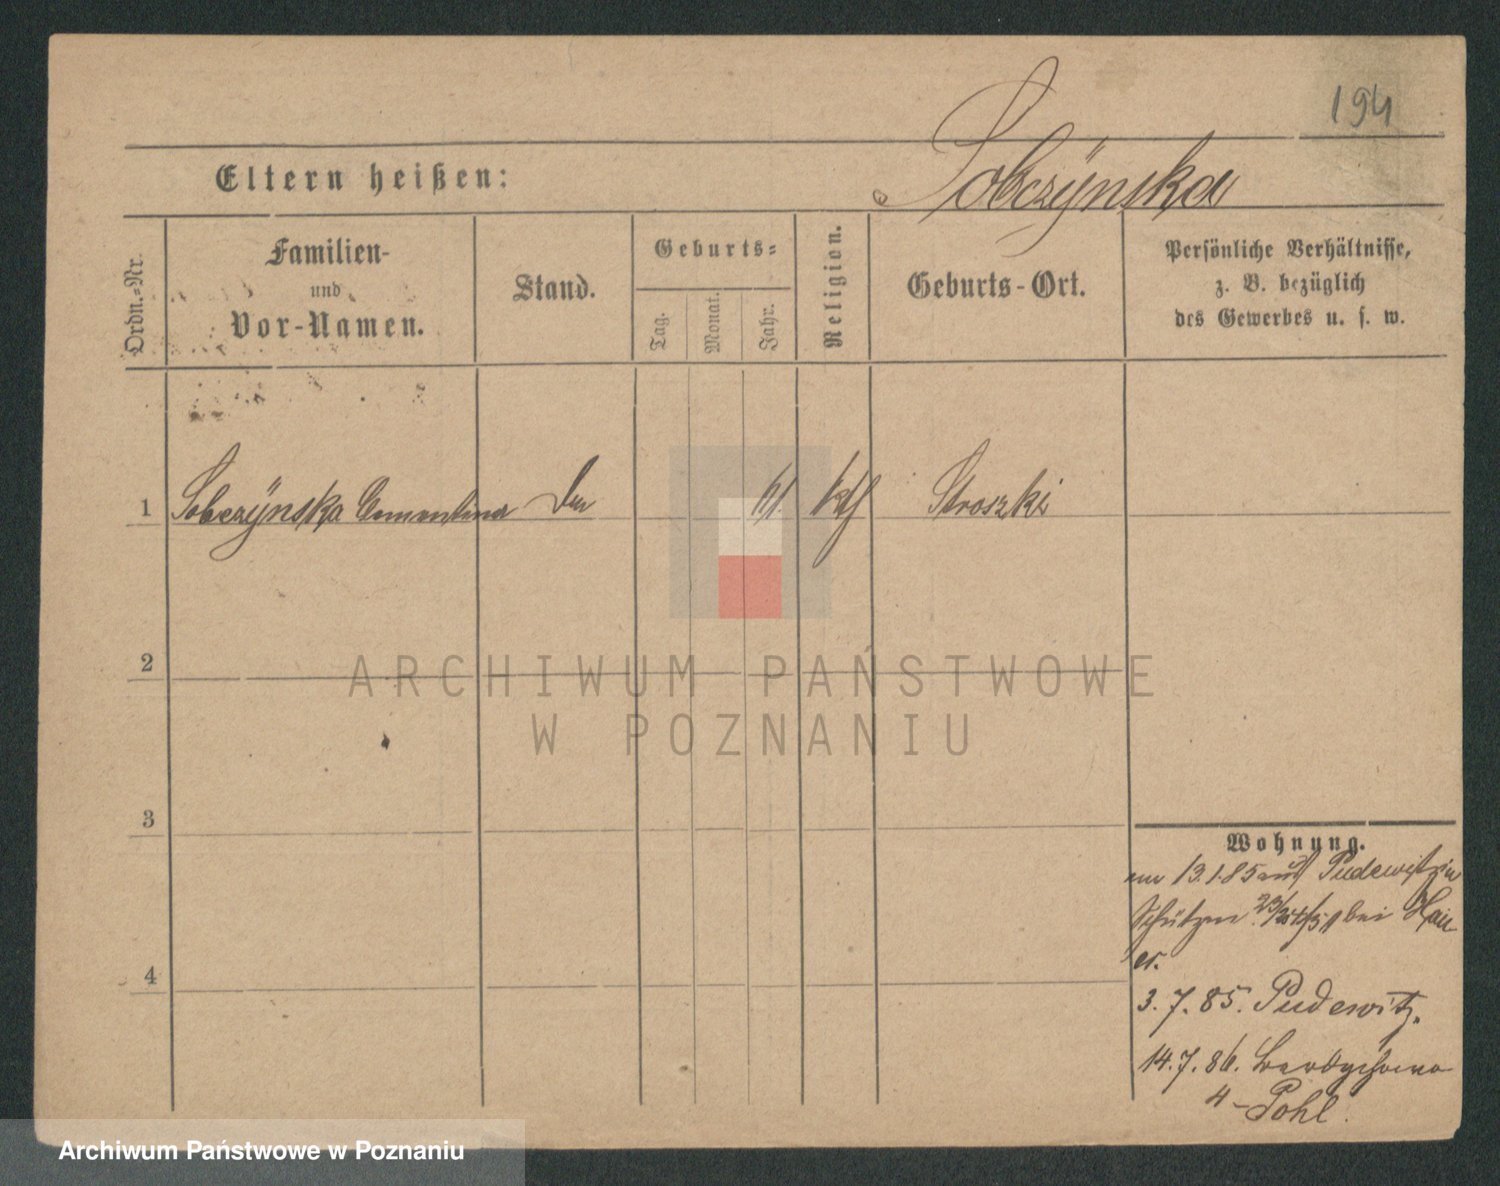 194
Eltern heißen:
Sobczÿnska
Ordn.-Nr.
Familien-
und
Vor-Namen.
Stand.
Geburts-
Tag.
Monat.
Jahr.
Religion.
Geburts-Ort.
Persönliche Verhältnisse,
z. B. bezüglich
des Gewerbes u. s. w.
1 Sobczÿnska 61 kth Stroszki
2
3
4
Wohnung.
13.1.85 aus Pudewitz in
Schützen bei Hau-
er.
3.7.85. Pudewitz.
14.7.86.
4 - Pohl.
ARCHIWUM PAŃSTWOWE
W POZNANIU
Archiwum Państwowe w Poznaniu